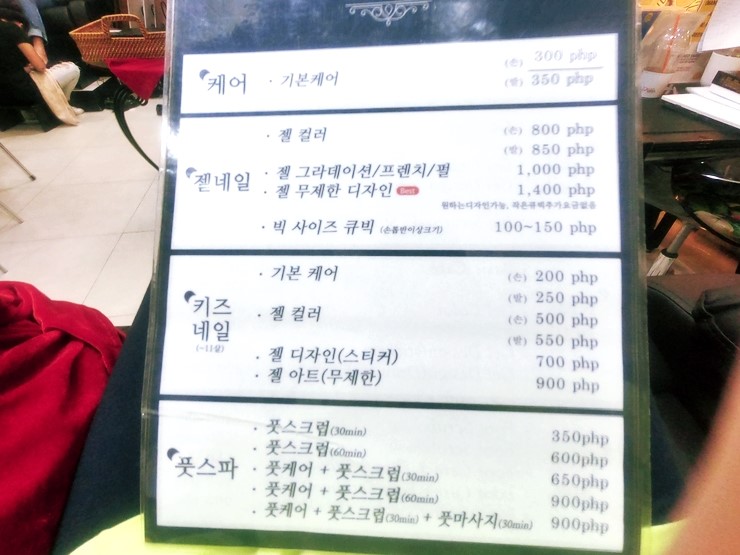 케어 · 기본케어 (손) 300 php
(발) 350 php
젤네일 · 젤 컬러 (손) 800 php
(발) 850 php
· 젤 그라데이션/프렌치/펄 1,000 php
· 젤 무제한 디자인 Best 1,400 php
원하는디자인가능, 작은큐빅추가요금없음
· 빅 사이즈 큐빅 (손톱반이상크기) 100~150 php
키즈
네일
(~11살)
· 기본 케어 (손) 200 php
(발) 250 php
· 젤 컬러 (손) 500 php
(발) 550 php
· 젤 디자인(스티커) 700 php
· 젤 아트(무제한) 900 php
풋스파 · 풋스크럽(30min) 350php
· 풋스크럽(60min) 600php
· 풋케어 + 풋스크럽(30min) 650php
· 풋케어 + 풋스크럽(60min) 900php
· 풋케어 + 풋스크럽(30min) + 풋마사지(30min) 900php